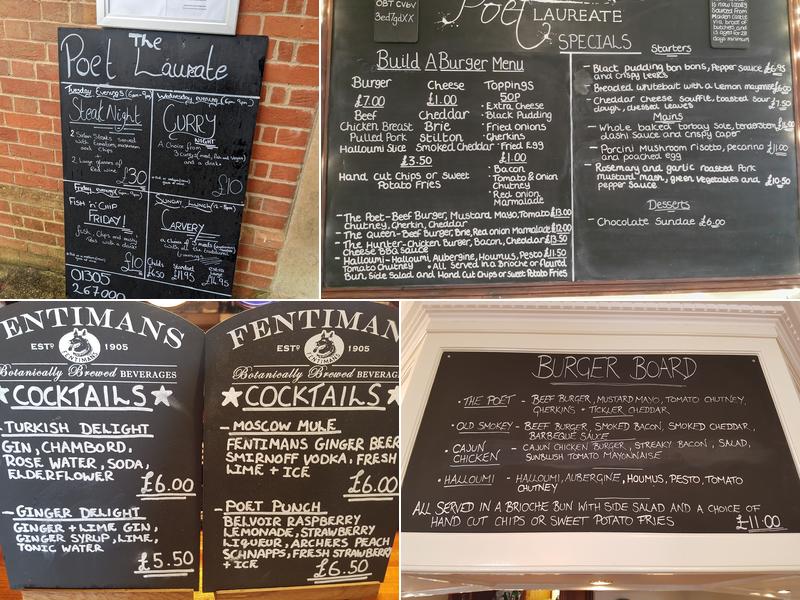 The
Poet Laureate
Tuesday Evenings (6pm - 9pm)
Steak Night
2 Sirloin Steaks served
with tomatoes, mushroom
and Chips
+
2 Large glasses of
Red wine
£30
Wednesday evening (6pm - 9pm)
CURRY
NIGHT
A Choice from
3 currys (meat, fish and vegan)
and a drink
£10
Friday evening
FISH 'n' CHIP
FRIDAY!
fish, Chips and mushy
peas with a drink
£10
SUNDAY LUNCH (12 - 8pm)
CARVERY
a choice of 3 meats
with all the
Childs
£6.50
Standard
£11.95
Large
£14.95
01305
267000
OBT CVbV
3edJgdXX
Poet LAUREATE
SPECIALS
is now locally
Sourced from
Maiden Castle
via Brace of
butchers, and
is aged for 28
days minimum
Build A Burger Menu
Burger
£7.00
Beef
Chicken Breast
Pulled Pork
Halloumi Slice
Cheese
£1.00
Cheddar
Brie
Stilton
Smoked Cheddar
£3.50
Hand Cut Chips or Sweet
Potato Fries
Toppings
50P
• Extra Cheese
• Black Pudding
• Fried onions
• Gherkins
• Fried Egg
£1.00
• Bacon
• Tomato & Onion
Chutney
• Red onion
Marmalade
- The Poet - Beef Burger, Mustard Mayo, Tomato £13.00
Chutney, Gherkin, Cheddar
- The Queen - Beef Burger, Brie, Red onion Marmalade £12.00
- The Hunter - Chicken Burger, Bacon, Cheddar £13.50
Cheese BBQ sauce
- Halloumi - Halloumi, Aubergine, Houmus, Pesto £11.50
Tomato Chutney • All Served in a Brioche or floured
Bun, Side Salad and Hand Cut Chips or Sweet Potato Fries
Starters
- Black pudding bon bons, Pepper sauce £6.95
and crispy leeks
- Breaded Whitebait with a Lemon mayonnaise £6.00
- Cheddar Cheese Souffle, toasted Sour £7.50
dough, dressed leaves
Mains
- Whole baked torbay sole,
dashi sauce and Crispy caper
- Porcini Mushroom risotto, pecorino £11.00
and poached egg
- Rosemary and garlic roasted Pork
mustard mash, green vegetables and £10.50
pepper sauce
Desserts
- Chocolate Sundae £6.00
FENTIMANS
ESTD 1905
FENTIMANS
Botanically Brewed BEVERAGES
COCKTAILS
- TURKISH DELIGHT
GIN, CHAMBORD,
ROSE WATER, SODA,
ELDERFLOWER
£6.00
- GINGER DELIGHT
GINGER + LIME GIN,
GINGER SYRUP, LIME,
TONIC WATER
£5.50
FENTIMAN
ESTD 1905
FENTIMANS
Botanically Brewed BEVERAGES
COCKTAILS
- MOSCOW MULE
FENTIMANS GINGER BEER
SMIRNOFF VODKA, FRESH
LIME + ICE
£6.00
- POET PUNCH
BELVOIR RASPBERRY
LEMONADE, STRAWBERRY
LIQUEUR, ARCHERS PEACH
SCHNAPPS, FRESH STRAWBERRY
+ ICE
£6.50
BURGER BOARD
• THE POET - BEEF BURGER, MUSTARD MAYO, TOMATO CHUTNEY,
GHERKINS + TICKLER CHEDDAR
• OLD SMOKEY - BEEF BURGER, SMOKED BACON, SMOKED CHEDDAR,
BARBEQUE SAUCE
• CAJUN CHICKEN - CAJUN CHICKEN BURGER, STREAKY BACON, SALAD,
SUNBLUSH TOMATO MAYONNAISE
• HALLOUMI - HALLOUMI, AUBERGINE, HOUMUS, PESTO, TOMATO
CHUTNEY
ALL SERVED IN A BRIOCHE BUN WITH SIDE SALAD AND A CHOICE OF
HAND CUT CHIPS OR SWEET POTATO FRIES
£11.00